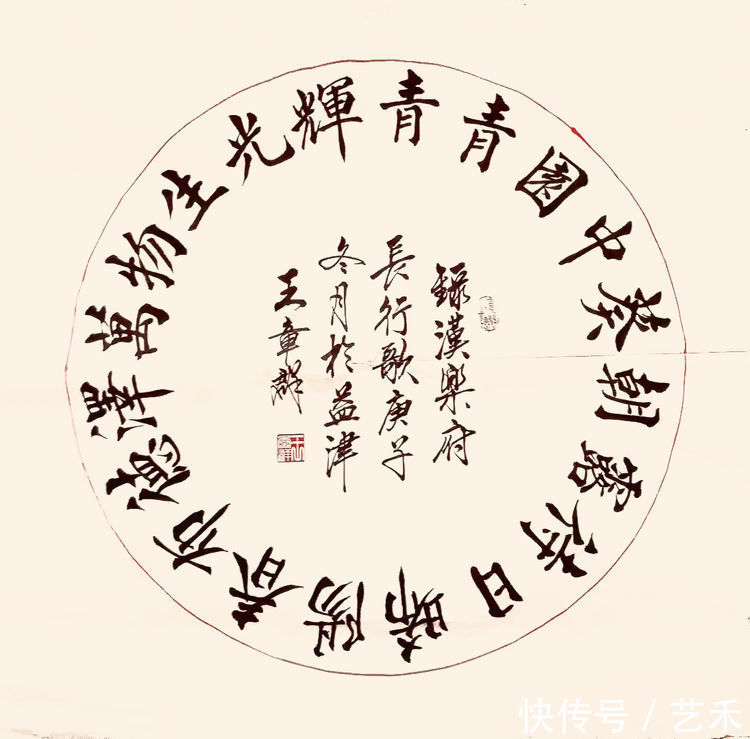 青青園中葵朝露待日晞陽春布德澤萬物生光輝
録漢樂府
長行歌庚子
冬月於益津
王章群
快传号 / 艺禾